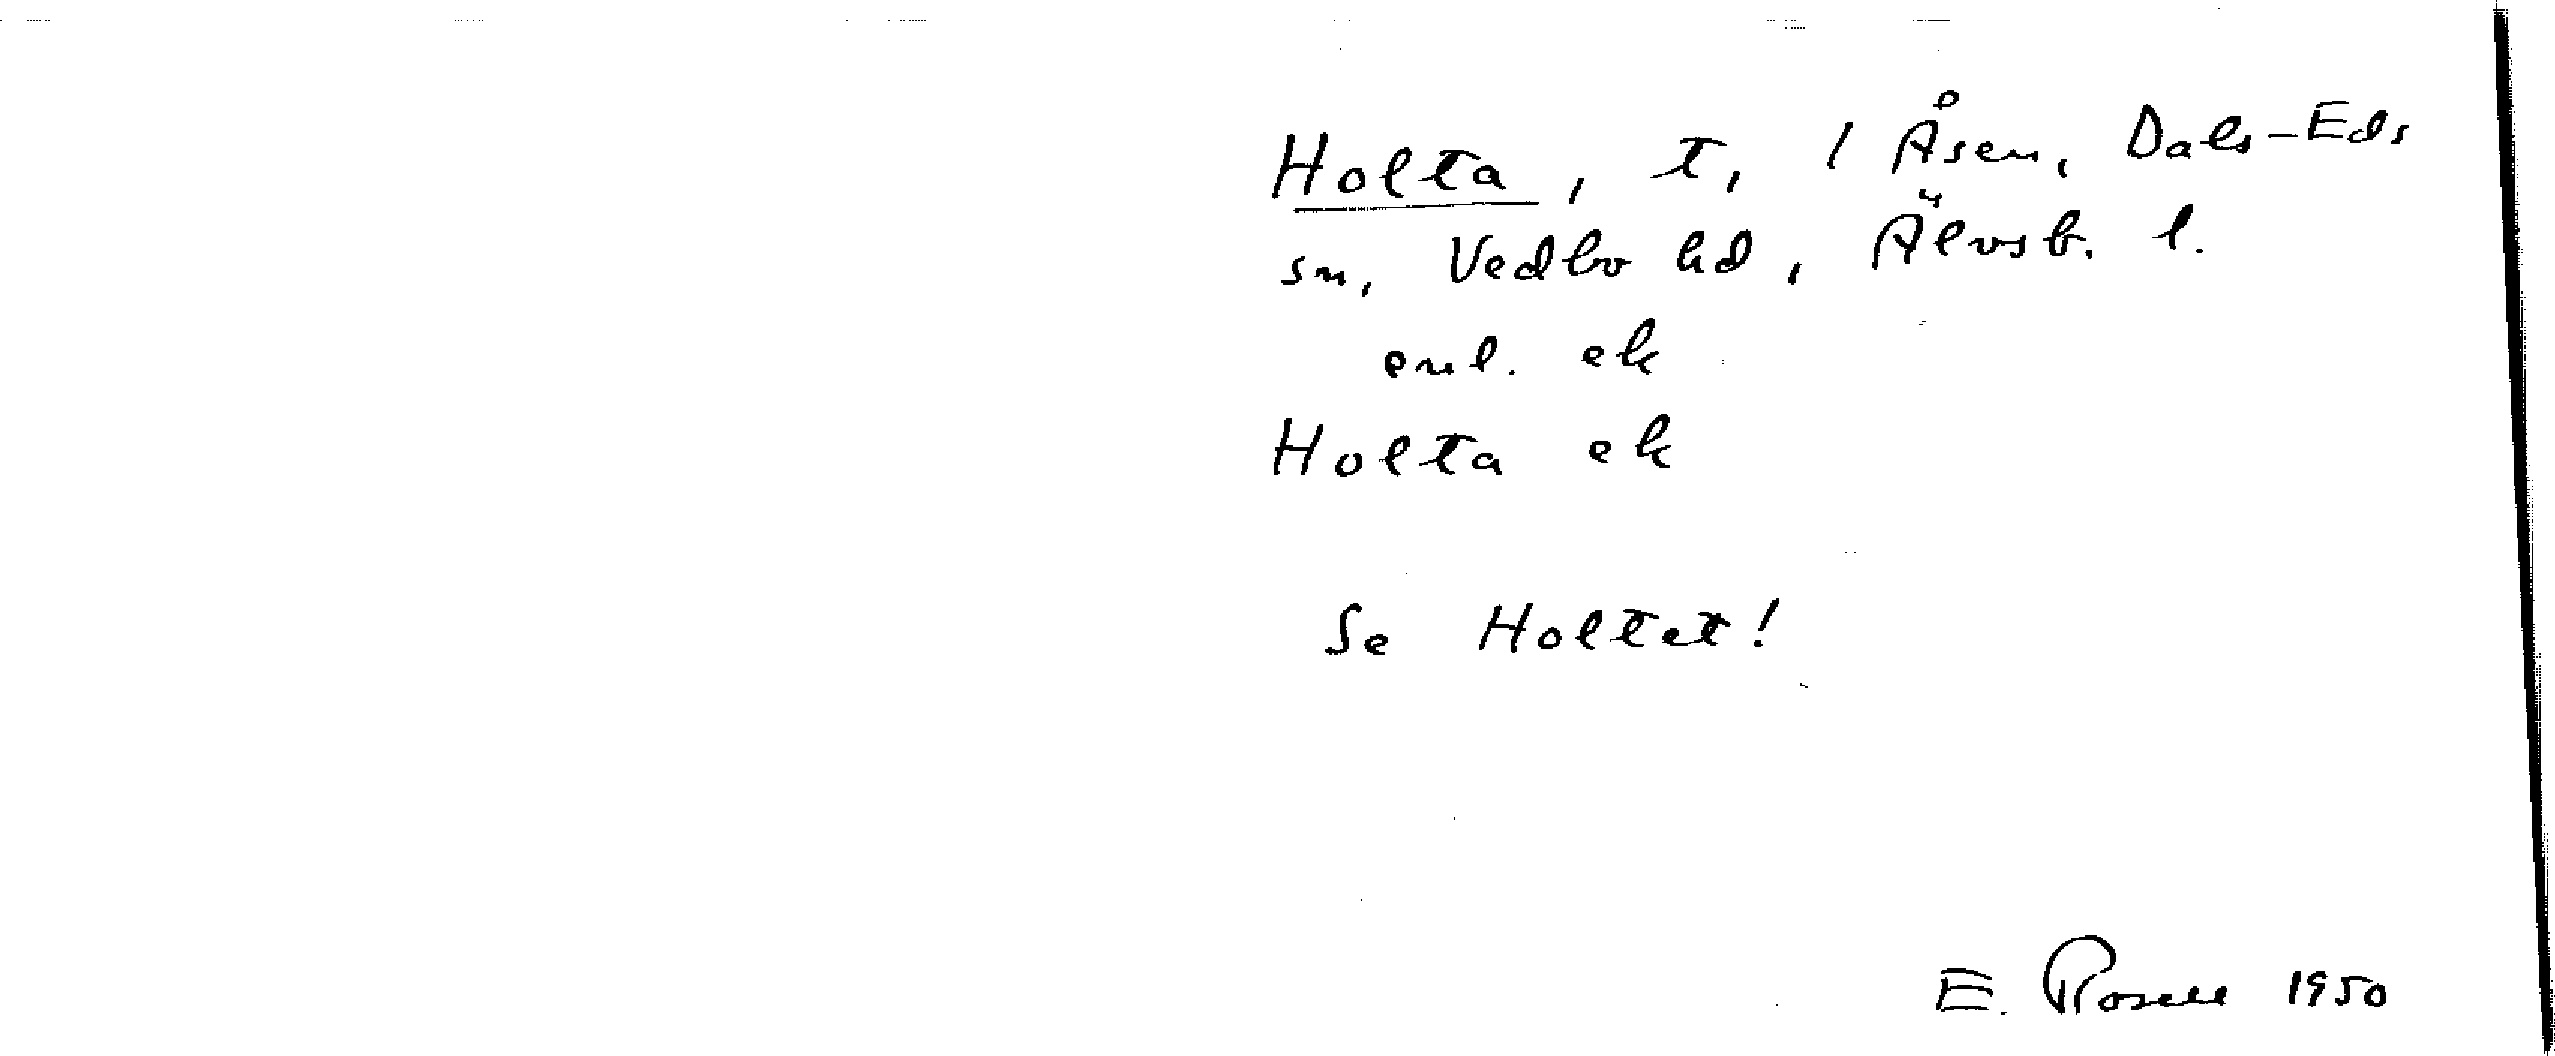 Holta, t, / Åsen, Dals-Eds
sn, Vedbo hd, Älvsb. l.
enl. ek
Holta ek
Se Holtet!
E. Rosell 1950